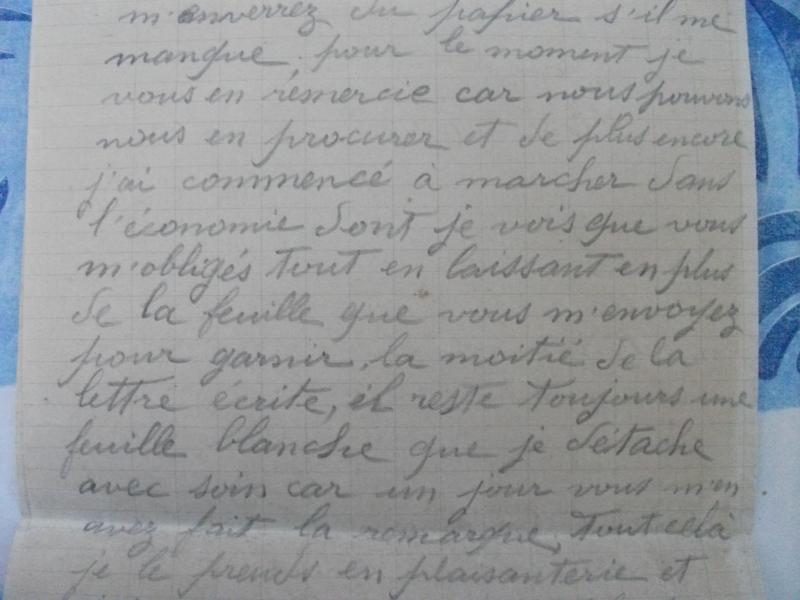 m'enverrez du papier s'il me
manque, pour le moment je
vous en rémercie car nous pouvons
nous en procurer et de plus encore
j'ai commencé à marcher dans
l'économie dont je vois que vous
m'obligés tout en laissant en plus
de la feuille que vous m'envoyez
pour garnir, la moitié de la
lettre écrite, il reste toujours une
feuille blanche que je détache
avec soin car un jour vous m'en
avez fait la remarque, tout celà
je le prends en plaisanterie et